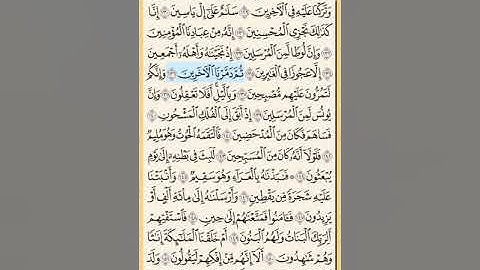 وَتَرَكْنَا عَلَيْهِ فِي الْآخِرِينَ ١٢٩ سَلَامٌ عَلَىٰ إِلْ يَاسِينَ ١٣٠ إِنَّا
كَذَٰلِكَ نَجْزِي الْمُحْسِنِينَ ١٣١ إِنَّهُ مِنْ عِبَادِنَا الْمُؤْمِنِينَ
١٣٢ وَإِنَّ لُوطًا لَمِنَ الْمُرْسَلِينَ ١٣٣ إِذْ نَجَّيْنَاهُ وَأَهْلَهُ أَجْمَعِينَ
١٣٤ إِلَّا عَجُوزًا فِي الْغَابِرِينَ ١٣٥ ثُمَّ دَمَّرْنَا الْآخَرِينَ ١٣٦ وَإِنَّكُمْ
لَتَمُرُّونَ عَلَيْهِمْ مُصْبِحِينَ ١٣٧ وَبِاللَّيْلِ أَفَلَا تَعْقِلُونَ ١٣٨ وَإِنَّ
يُونُسَ لَمِنَ الْمُرْسَلِينَ ١٣٩ إِذْ أَبَقَ إِلَى الْفُلْكِ الْمَشْحُونِ ١٤٠
فَسَاهَمَ فَكَانَ مِنَ الْمُدْحَضِينَ ١٤١ فَالْتَقَمَهُ الْحُوتُ وَهُوَ مُلِيمٌ
١٤٢ فَلَوْلَا أَنَّهُ كَانَ مِنَ الْمُسَبِّحِينَ ١٤٣ لَلَبِثَ فِي بَطْنِهِ إِلَىٰ يَوْمِ
يُبْعَثُونَ ١٤٤ فَنَبَذْنَاهُ بِالْعَرَاءِ وَهُوَ سَقِيمٌ ١٤٥ وَأَنْبَتْنَا
عَلَيْهِ شَجَرَةً مِنْ يَقْطِينٍ ١٤٦ وَأَرْسَلْنَاهُ إِلَىٰ مِائَةِ أَلْفٍ أَوْ
يَزِيدُونَ ١٤٧ فَآمَنُوا فَمَتَّعْنَاهُمْ إِلَىٰ حِينٍ ١٤٨ فَاسْتَفْتِهِمْ
أَلِرَبِّكَ الْبَنَاتُ وَلَهُمُ الْبَنُونَ ١٤٩ أَمْ خَلَقْنَا الْمَلَائِكَةَ إِنَاثًا
وَهُمْ شَاهِدُونَ ١٥٠ أَلَا إِنَّهُمْ مِنْ إِفْكِهِمْ لَيَقُولُونَ ١٥١ وَلَدَ